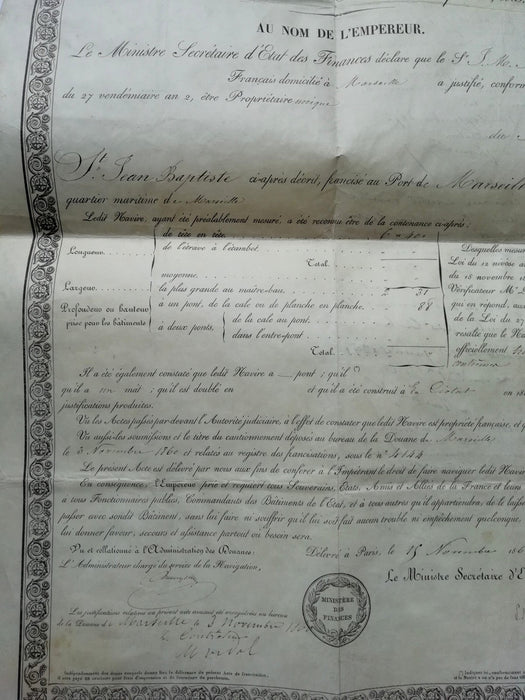 AU NOM DE L'EMPEREUR.
Le Ministre Secrétaire d'État des Finances déclare que le Sr J. M.
Français domicilié à Marseille a justifié, confor
du 27 vendémiaire an 2, être Propriétaire unique
du
St. Jean Baptiste ci-après décrit, francisé au Port de Marseill
quartier maritime de Marseille
Ledit Navire, ayant été préalablement mesuré, a été reconnu être de la contenance ci-après:
de tête en tête.
Longueur. de l'étrave à l'étambot.
Total.
moyenne.
Largeur la plus grande au maître-bau. 2 31
Profondeur ou hauteur à un pont, de la cale ou de planche en planche. 88
prise pour les bâtiments à deux ponts, de la cale au pont.
dans l'entre-pont.
Total.
Desquelles mesu
Loi du 12 nivose a
du 18 novembre
Vérificateur Mr
qui en répond, au
de la Loi du 27
résulte que le Na
officiellement
Il a été également constaté que ledit Navire a pont; qu'il
qu'il a un mat; qu'il est doublé en et qu'il a été construit à La Ciotat en 18
justifications produites.
Vu les Actes passés par devant l'Autorité judiciaire, à l'effet de constater que ledit Navire est propriété française, et q
Vu aussi les soumissions et le titre du cautionnement déposés au bureau de la Douane de Marseille
le 3 Novembre 1860 et relatés au registre des francisations, sous le n° 4144
Le présent Acte est délivré par nous aux fins de conférer à l'Impétrant le droit de faire naviguer ledit Navire
En conséquence, l'Empereur prie et requiert tous Souverains, États, Amis et Alliés de la France et leurs
à tous Fonctionnaires publics, Commandants des Bâtiments de l'État, et à tous autres qu'il appartiendra, de le laisse
passer avec sondit Bâtiment, sans lui faire ni souffrir qu'il lui soit fait aucun trouble ni empêchement quelconque,
lui donner faveur, secours et assistance partout où besoin sera.
Vu et collationné à l'Administration des Douanes: Délivré à Paris, le 15 Novembre 186
L'Administrateur chargé du service de la Navigation,
Le Ministre Secrétaire d'É
MINISTÈRE
DES
FINANCES
Les justifications relatives au présent acte ont été enregistrées au bureau
de la Douane de Marseille le 3 Novembre
Le Contrôleur
Indépendamment des droits exigibles